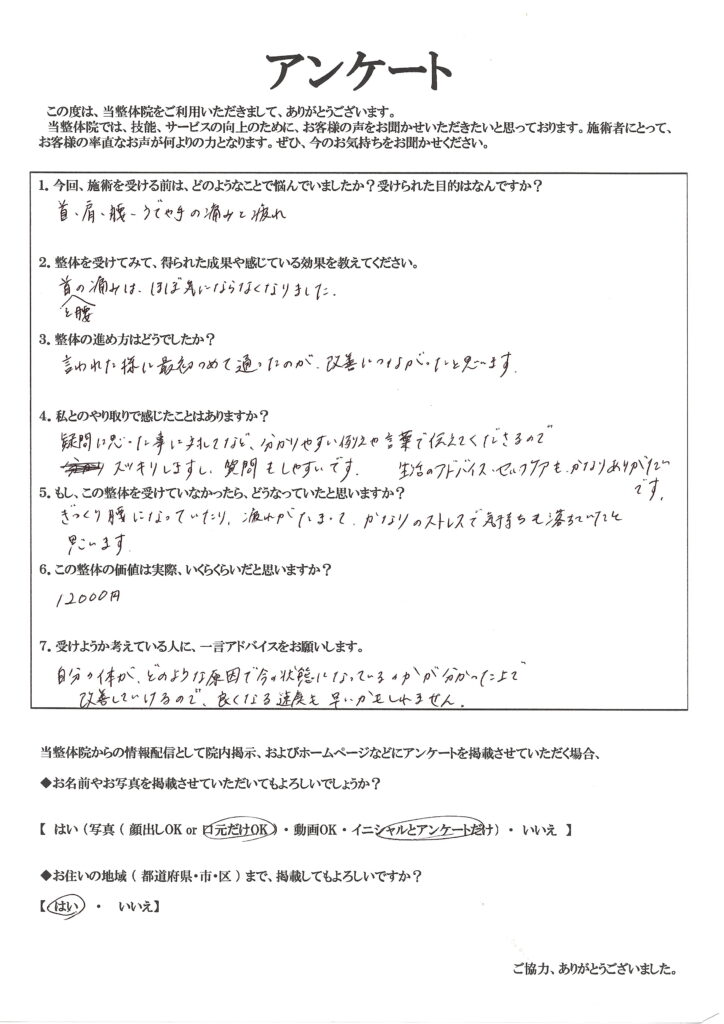 アンケート
この度は、当整体院をご利用いただきまして、ありがとうございます。
当整体院では、技能、サービスの向上のために、お客様の声をお聞かせいただきたいと思っております。施術者にとって、
お客様の率直なお声が何よりの力となります。ぜひ、今のお気持ちをお聞かせください。
1. 今回、施術を受ける前は、どのようなことで悩んでいましたか？受けられた目的はなんですか？
首・肩・腰・うでや手の痛みと疲れ
2. 整体を受けてみて、得られた成果や感じている効果を教えてください。
首の痛みは、ほぼ気にならなくなりました.
と腰
3. 整体の進め方はどうでしたか？
言われた様に最初つめて通ったのが、改善につながったと思います.
4. 私とのやり取りで感じたことはありますか？
疑問に思った事に対してなど、分かりやすい例えや言葉で伝えてくださるので
スッキリしますし、質問もしやすいです. 生活のアドバイス・セルフケアも、かなりありがたい
です.
5. もし、この整体を受けていなかったら、どうなっていたと思いますか？
ぎっくり腰になっていたり、疲れがたまって、かなりのストレスで気持ちも落ちていたと
思います.
6. この整体の価値は実際、いくらくらいだと思いますか？
12000円
7. 受けようか考えている人に、一言アドバイスをお願いします。
自分の体が、どのような原因で今の状態になっているのかが分かった上で
改善していけるので、良くなる速度も早いかもしれません.
当整体院からの情報配信として院内掲示、およびホームページなどにアンケートを掲載させていただく場合、
◆お名前やお写真を掲載させていただいてもよろしいでしょうか？
【 はい（写真（ 顔出しOK or 口元だけOK ）・動画OK・イニシャルとアンケートだけ）・ いいえ 】
◆お住いの地域（ 都道府県・市・区 ）まで、掲載してもよろしいですか？
【 はい ・ いいえ】
ご協力、ありがとうございました。